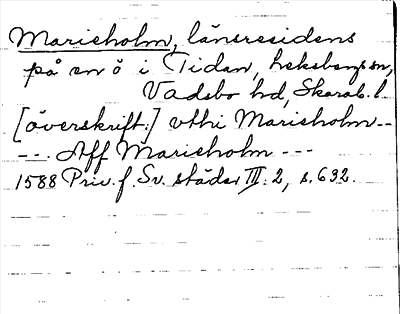 Marieholm, länsresidens
på en ö i Tidan, Leksbergs sn,
Vadsbo hd, Skarab. l.
[överskrift:] vthi Marieholm --
--- Aff Marieholm ---
1588 Priv. f. Sv. städer III: 2, s. 692.